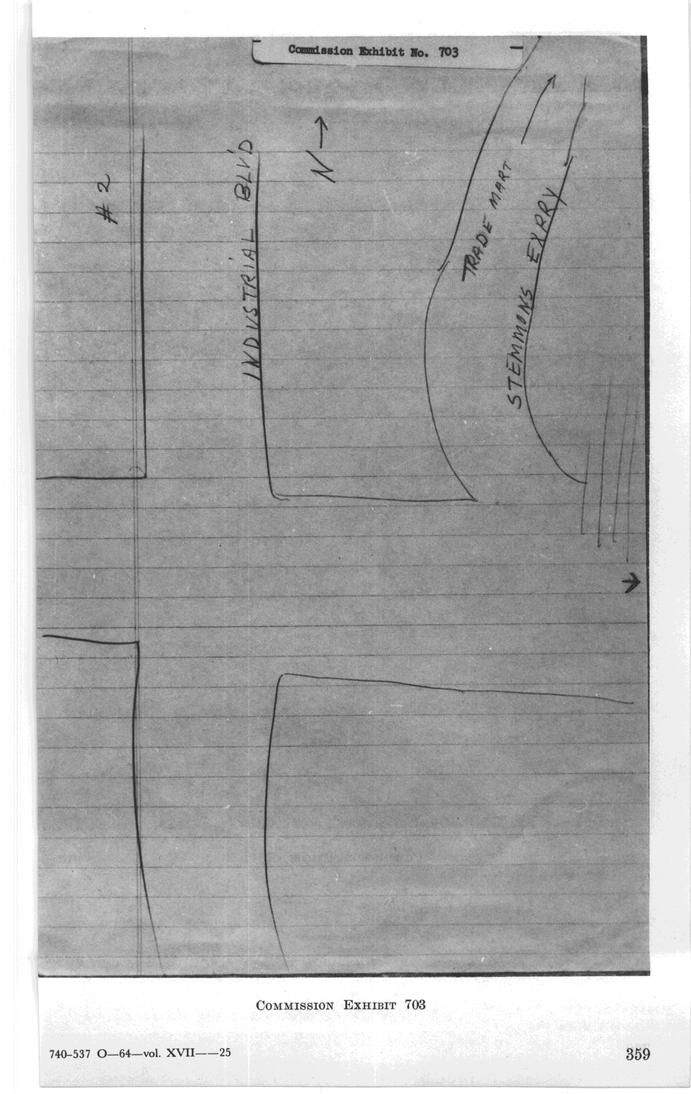 Commission Exhibit No. 703
# 2
INDUSTRIAL BLV'D
N
TRADE MART
STEMMONS EXPRY
COMMISSION EXHIBIT 703
740-537 O—64—vol. XVII——25
359